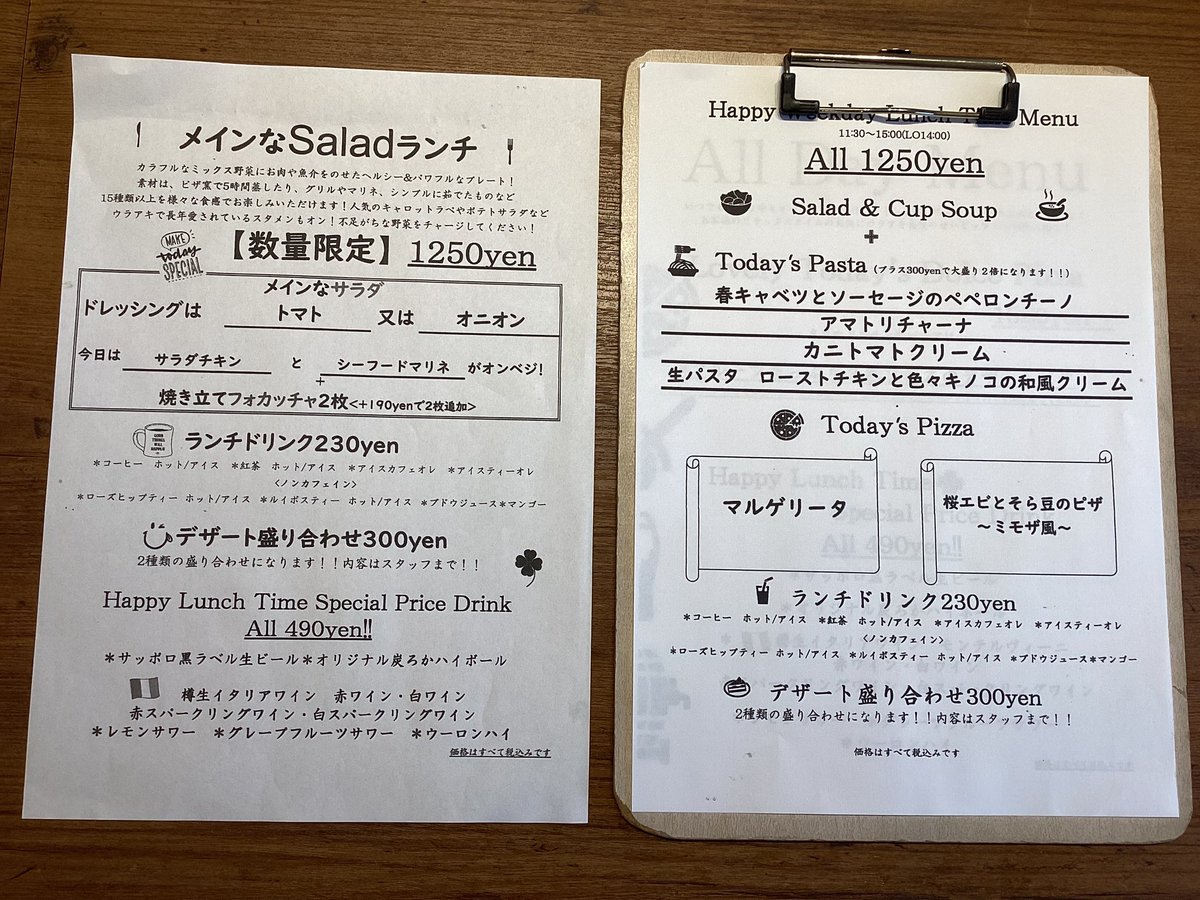 メインなSaladランチ
カラフルなミックス野菜にお肉や魚介をのせたヘルシー&パワフルなプレート！
素材は、ピザ窯で5時間蒸したり、グリルやマリネ、シンプルに茹でたものなど
15種類以上を様々な食感でお楽しみいただけます！人気のキャロットラペやポテトサラダなど
ウラアキで長年愛されているスタメンもオン！不足がちな野菜をチャージしてください！
MAKE
today
SPECIAL
【数量限定】 1250yen
メインなサラダ
ドレッシングは トマト 又は オニオン
今日は サラダチキン と シーフードマリネ がオンベジ!
+
焼き立てフォカッチャ2枚<+190yenで2枚追加>
GOOD
THINGS
WILL
HAPPEN
ランチドリンク230yen
*コーヒー ホット/アイス *紅茶 ホット/アイス *アイスカフェオレ *アイスティーオレ
<ノンカフェイン>
*ローズヒップティー ホット/アイス *ルイボスティー ホット/アイス *ブドウジュース*マンゴー
デザート盛り合わせ300yen
2種類の盛り合わせになります！！内容はスタッフまで！！
Happy Lunch Time Special Price Drink
All 490yen!!
*サッポロ黒ラベル生ビール*オリジナル炭ろかハイボール
樽生イタリアワイン 赤ワイン・白ワイン
赤スパークリングワイン・白スパークリングワイン
*レモンサワー *グレープフルーツサワー *ウーロンハイ
価格はすべて税込みです
Happy Weekday Lunch Time Menu
11:30～15:00(LO14:00)
All 1250yen
Salad & Cup Soup
+
Today's Pasta (プラス300yenで大盛り2倍になります！！)
春キャベツとソーセージのペペロンチーノ
アマトリチャーナ
カニトマトクリーム
生パスタ ローストチキンと色々キノコの和風クリーム
Today's Pizza
マルゲリータ
桜エビとそら豆のピザ
～ミモザ風～
ランチドリンク230yen
*コーヒー ホット/アイス *紅茶 ホット/アイス *アイスカフェオレ *アイスティーオレ
<ノンカフェイン>
*ローズヒップティー ホット/アイス *ルイボスティー ホット/アイス *ブドウジュース*マンゴー
デザート盛り合わせ300yen
2種類の盛り合わせになります！！内容はスタッフまで！！
価格はすべて税込みです